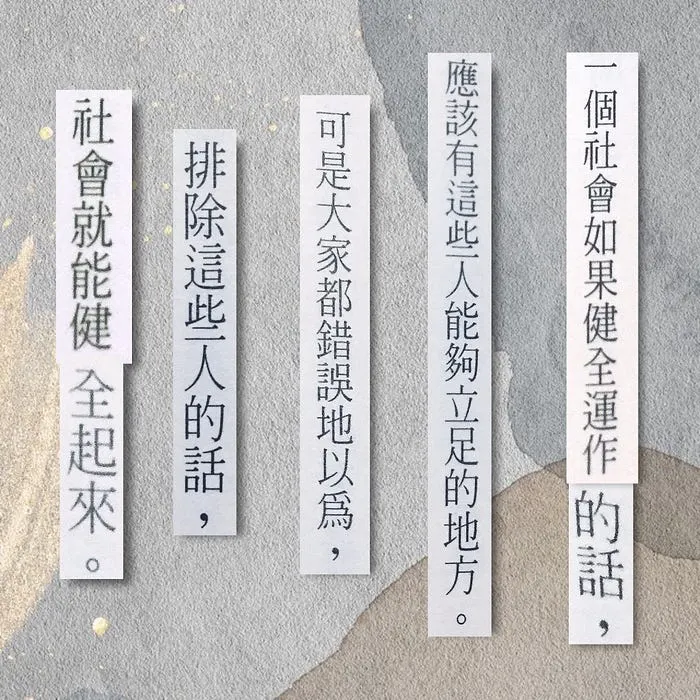 一個社會如果健全運作的話，
應該有這些人能夠立足的地方。
可是大家都錯誤地以爲，
排除這些人的話，
社會就能健全起來。